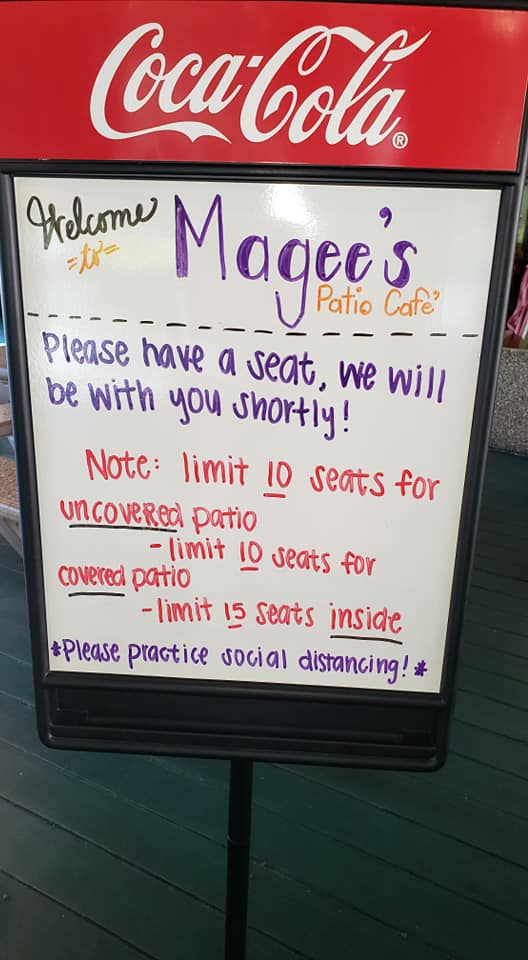 Coca-Cola®
Welcome
=to=
Magee's
Patio Cafe'
Please have a seat, we will
be with you shortly!
Note: limit 10 seats for
uncovered patio
-limit 10 seats for
covered patio
-limit 15 seats inside
*Please practice social distancing!*